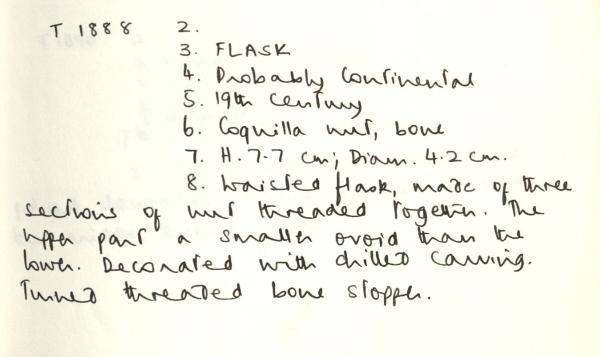 T 1888 2.
3. FLASK
4. Probably Continental
5. 19th Century
6. Coquilla nut, bone
7. H. 7.7 cm; Diam. 4.2 cm.
8. Waisted flask, made of three
sections of nut threaded together. The
upper part a smaller ovoid than the
lower. Decorated with drilled carving.
Turned threaded bone stopper.